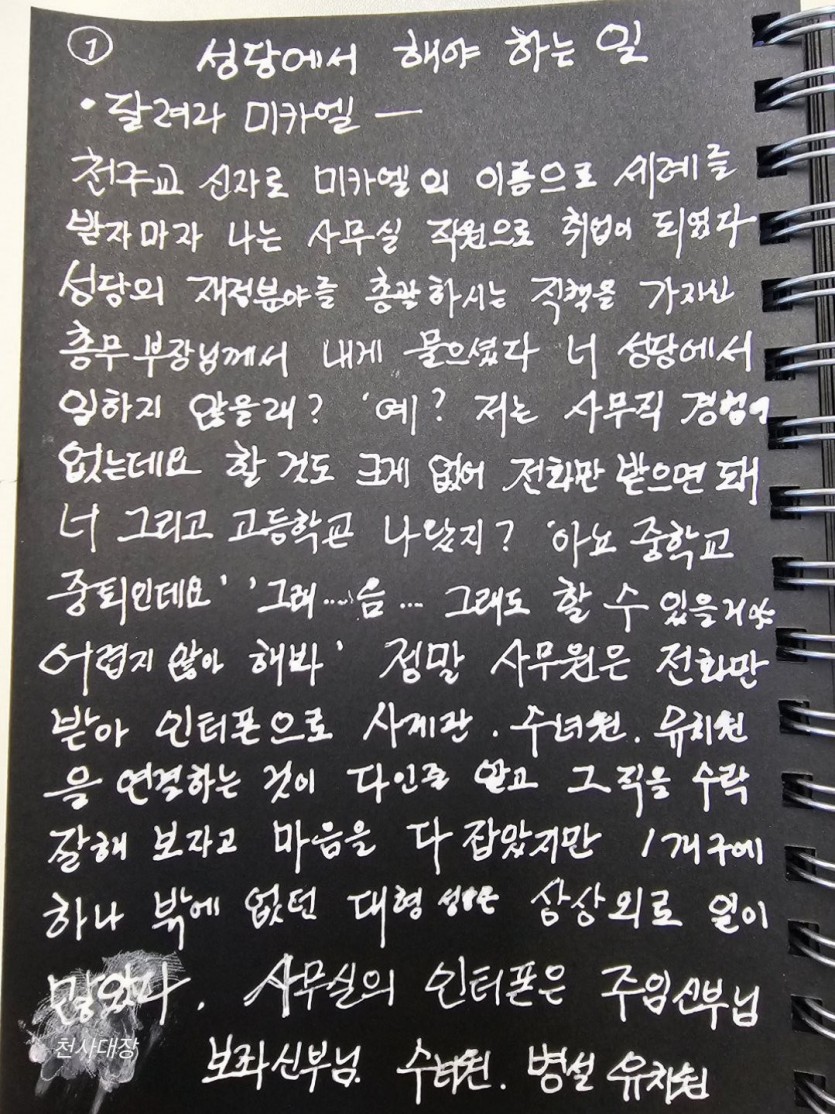 ① 성당에서 해야 하는 일
• 달려라 미카엘 —
천주교 신자로 미카엘의 이름으로 세례를
받자마자 나는 사무실 직원으로 취업이 되었다
성당의 재정분야를 총괄하시는 직책을 가지신
총무부장님께서 내게 물으셨다 너 성당에서
일하지 않을래? '예? 저는 사무직 경험이
없는데요 할 것도 크게 없어 전화만 받으면 돼
너 그리고 고등학교 나왔지? '아뇨 중학교
중퇴인데요' '그래....음... 그래도 할 수 있을거야
어렵지 않아 해봐' 정말 사무원은 전화만
받아 인터폰으로 사제관. 수녀원. 유치원
을 연결하는 것이 다인줄 알고 그 직을 수락
잘해 보자고 마음을 다 잡았지만 1개구에
하나 밖에 없던 대형 성당은 상상외로 일이
많았다. 사무실의 인터폰은 주임신부님
천사대장
보좌신부님. 수녀원. 병설 유치원